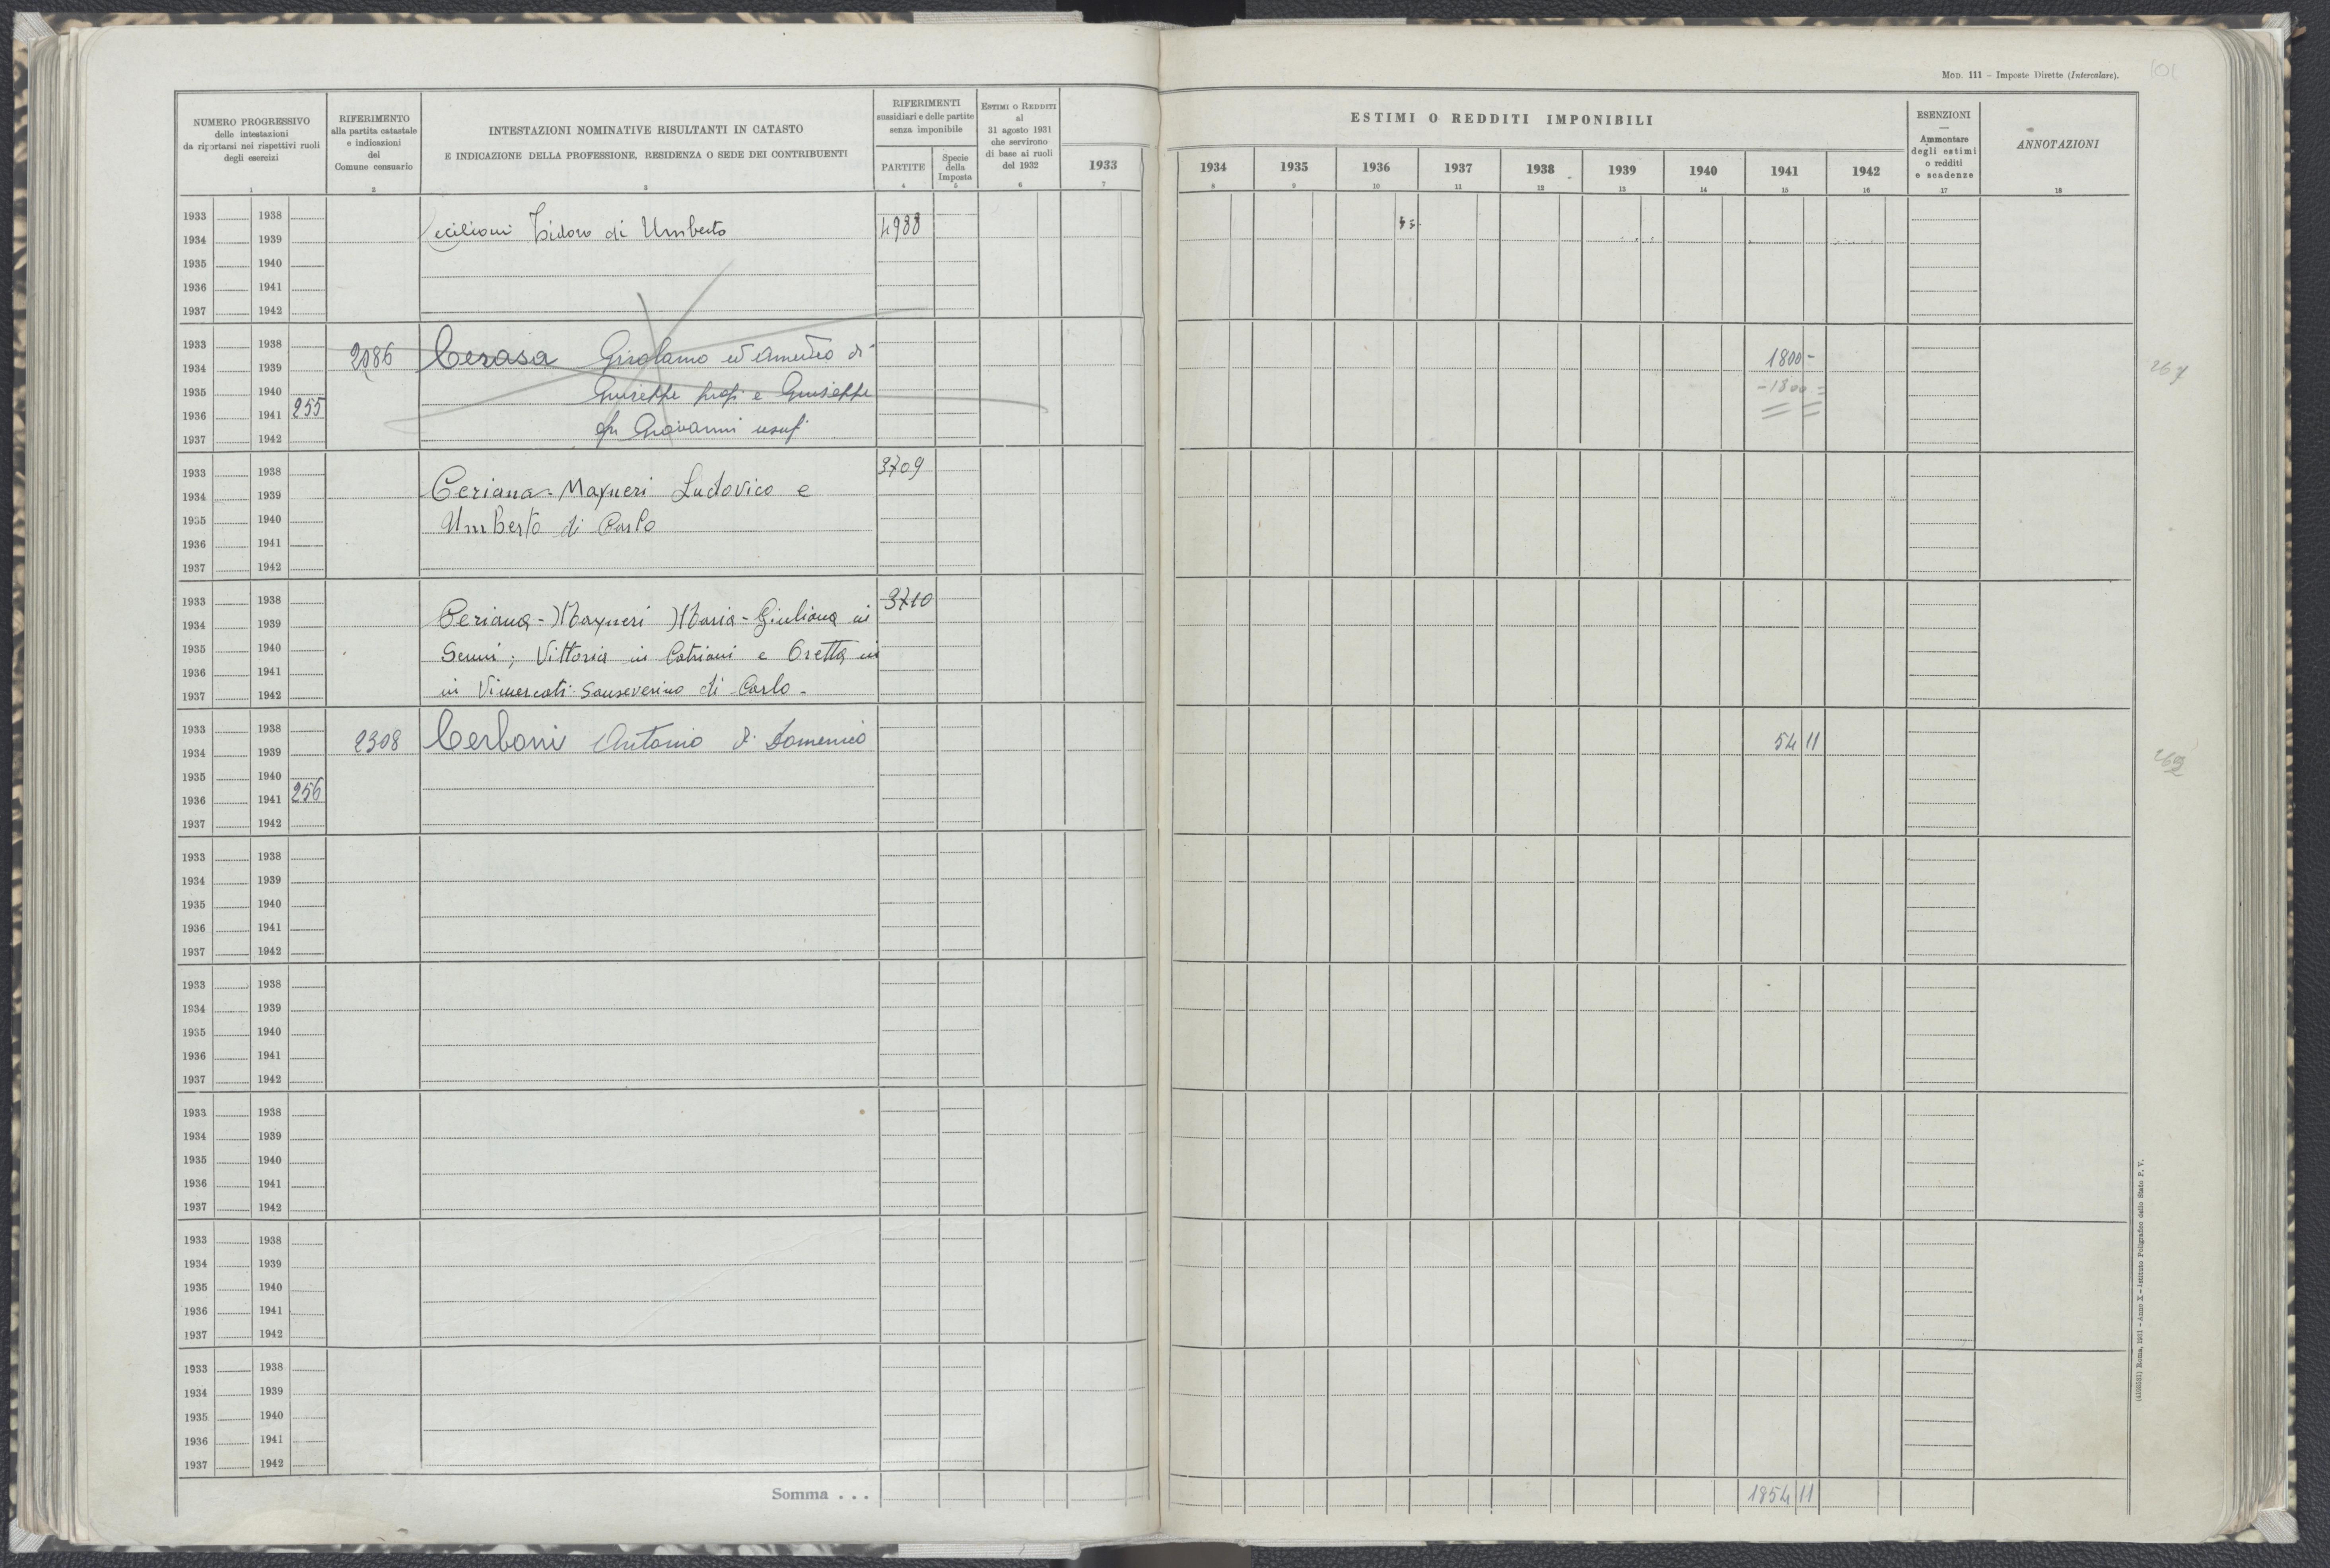 MOD. 111 - Imposte Dirette (Intercalare).
101
NUMERO PROGRESSIVO
delle intestazioni
da riportarsi nei rispettivi ruoli
degli esercizi
1
RIFERIMENTO
alla partita catastale
e indicazioni
del
Comune censuario
2
INTESTAZIONI NOMINATIVE RISULTANTI IN CATASTO
E INDICAZIONE DELLA PROFESSIONE, RESIDENZA O SEDE DEI CONTRIBUENTI
3
RIFERIMENTI
sussidiari e delle partite
senza imponibile
PARTITE
4
Specie
della
Imposta
5
ESTIMI O REDDITI
al
31 agosto 1931
che servirono
di base ai ruoli
del 1932
6
1933
7
ESTIMI O REDDITI IMPONIBILI
1934 1935 1936 1937 1938 1939 1940 1941 1942
8 9 10 11 12 13 14 15 16
ESENZIONI
—
Ammontare
degli estimi
o redditi
e scadenze
17
ANNOTAZIONI
18
1933 1938
1934 1939 Cecilioni Isidoro di Umberto 4988
1935 1940
1936 1941
1937 1942
1933 1938
1934 1939 2086 Cerasa Girolamo ed Amedeo di 1800 -
1935 1940 Giuseppe prop. e Giuseppe - 1800 =
1936 1941 255
1937 1942 fu Giovanni usuf.
267
1933 1938 3709
1934 1939 Ceriana-Mayneri Ludovico e
1935 1940 Umberto di Carlo
1936 1941
1937 1942
1933 1938 3710
1934 1939 Ceriana-Mayneri Maria-Giuliana in
1935 1940 Senni; Vittoria in Catriani e Oretta in
1936 1941
1937 1942 in Vimercati-Sanseverino di Carlo.
1933 1938
1934 1939 2308 Cerboni Antonio di Domenico 54 11
1935 1940
1936 1941 256
1937 1942
1933 1938
1934 1939
1935 1940
1936 1941
1937 1942
1933 1938
1934 1939
1935 1940
1936 1941
1937 1942
1933 1938
1934 1939
1935 1940
1936 1941
1937 1942
1933 1938
1934 1939
1935 1940
1936 1941
1937 1942
1933 1938
1934 1939
1935 1940
1936 1941
1937 1942
Somma . . . 1854 11
(4103151) Roma, 1931 - Anno X - Istituto Poligrafico dello Stato P. V.